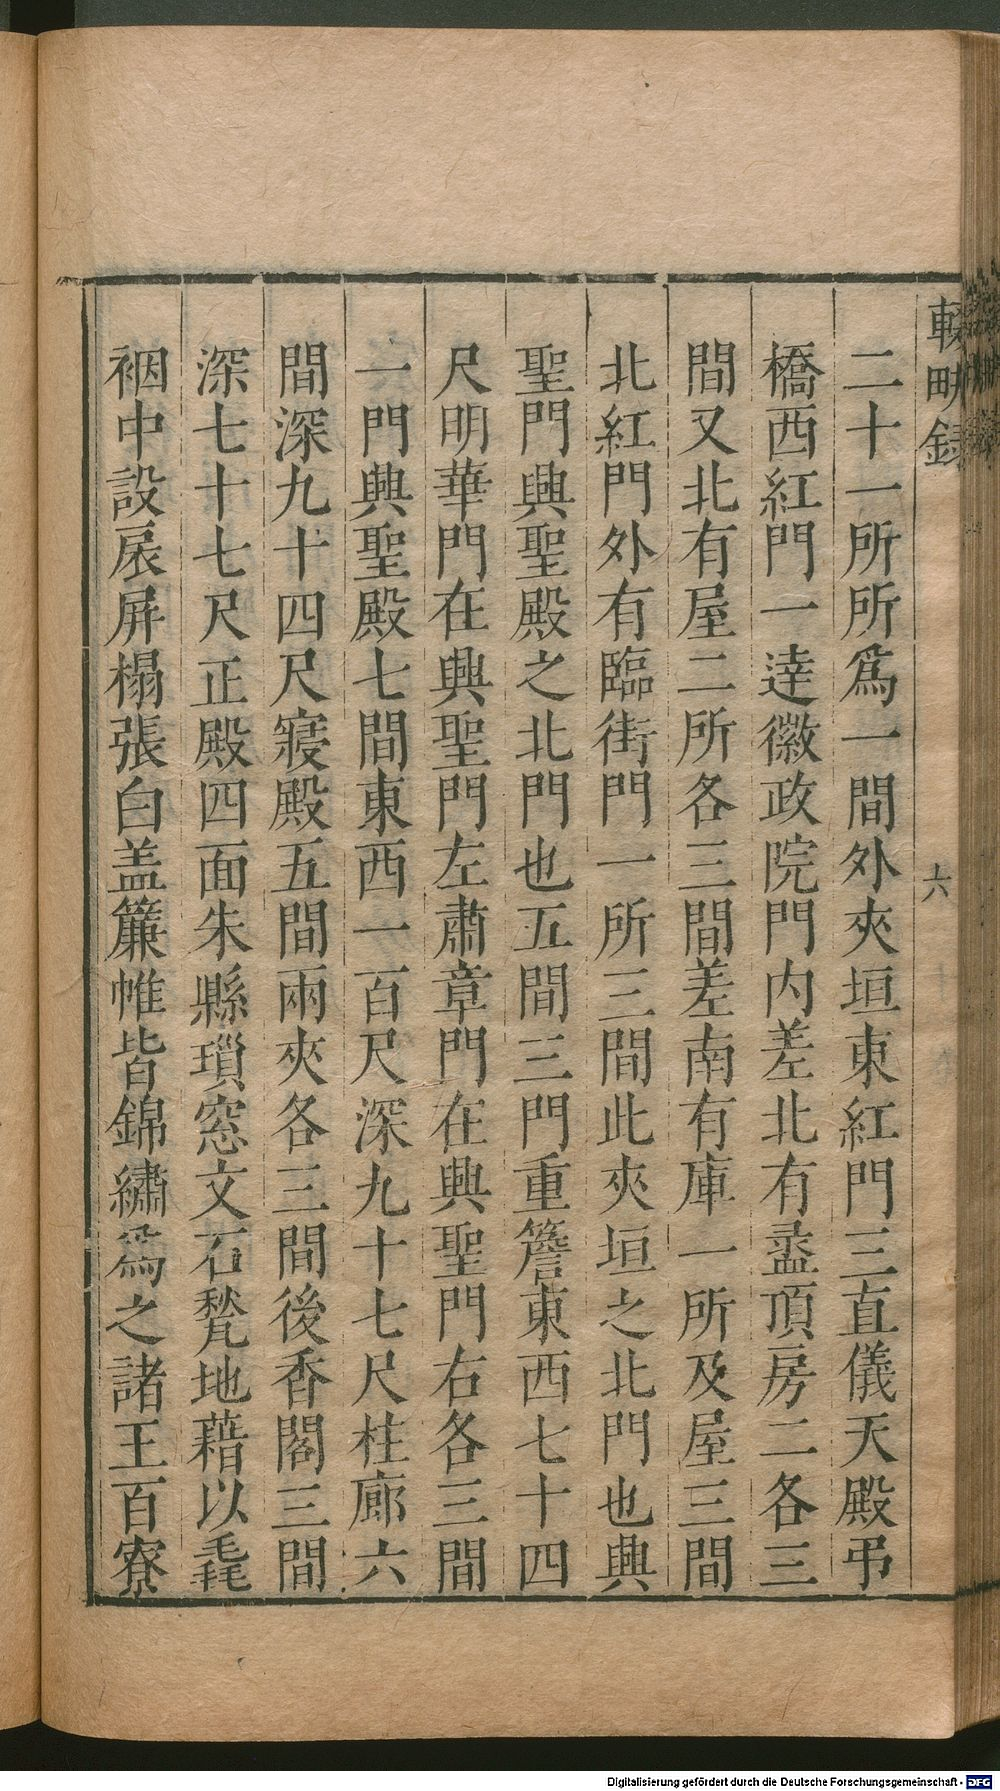 輟畊錄
六
二十一所所爲一間外夾垣東紅門三直儀天殿弔
橋西紅門一達徽政院門内差北有盝頂房二各三
間又北有屋二所各三間差南有庫一所及屋三間
北紅門外有臨街門一所三間此夾垣之北門也興
聖門興聖殿之北門也五間三門重簷東西七十四
尺明華門在興聖門左肅章門在興聖門右各三間
一門興聖殿七間東西一百尺深九十七尺柱廊六
間深九十四尺寢殿五間兩夾各三間後香閣三間
深七十七尺正殿四面朱縣瑣窓文石甃地藉以毳
裀中設扆屏榻張白盖簾帷皆錦繡爲之諸王百寮
Digitalisierung gefördert durch die Deutsche Forschungsgemeinschaft - DFG